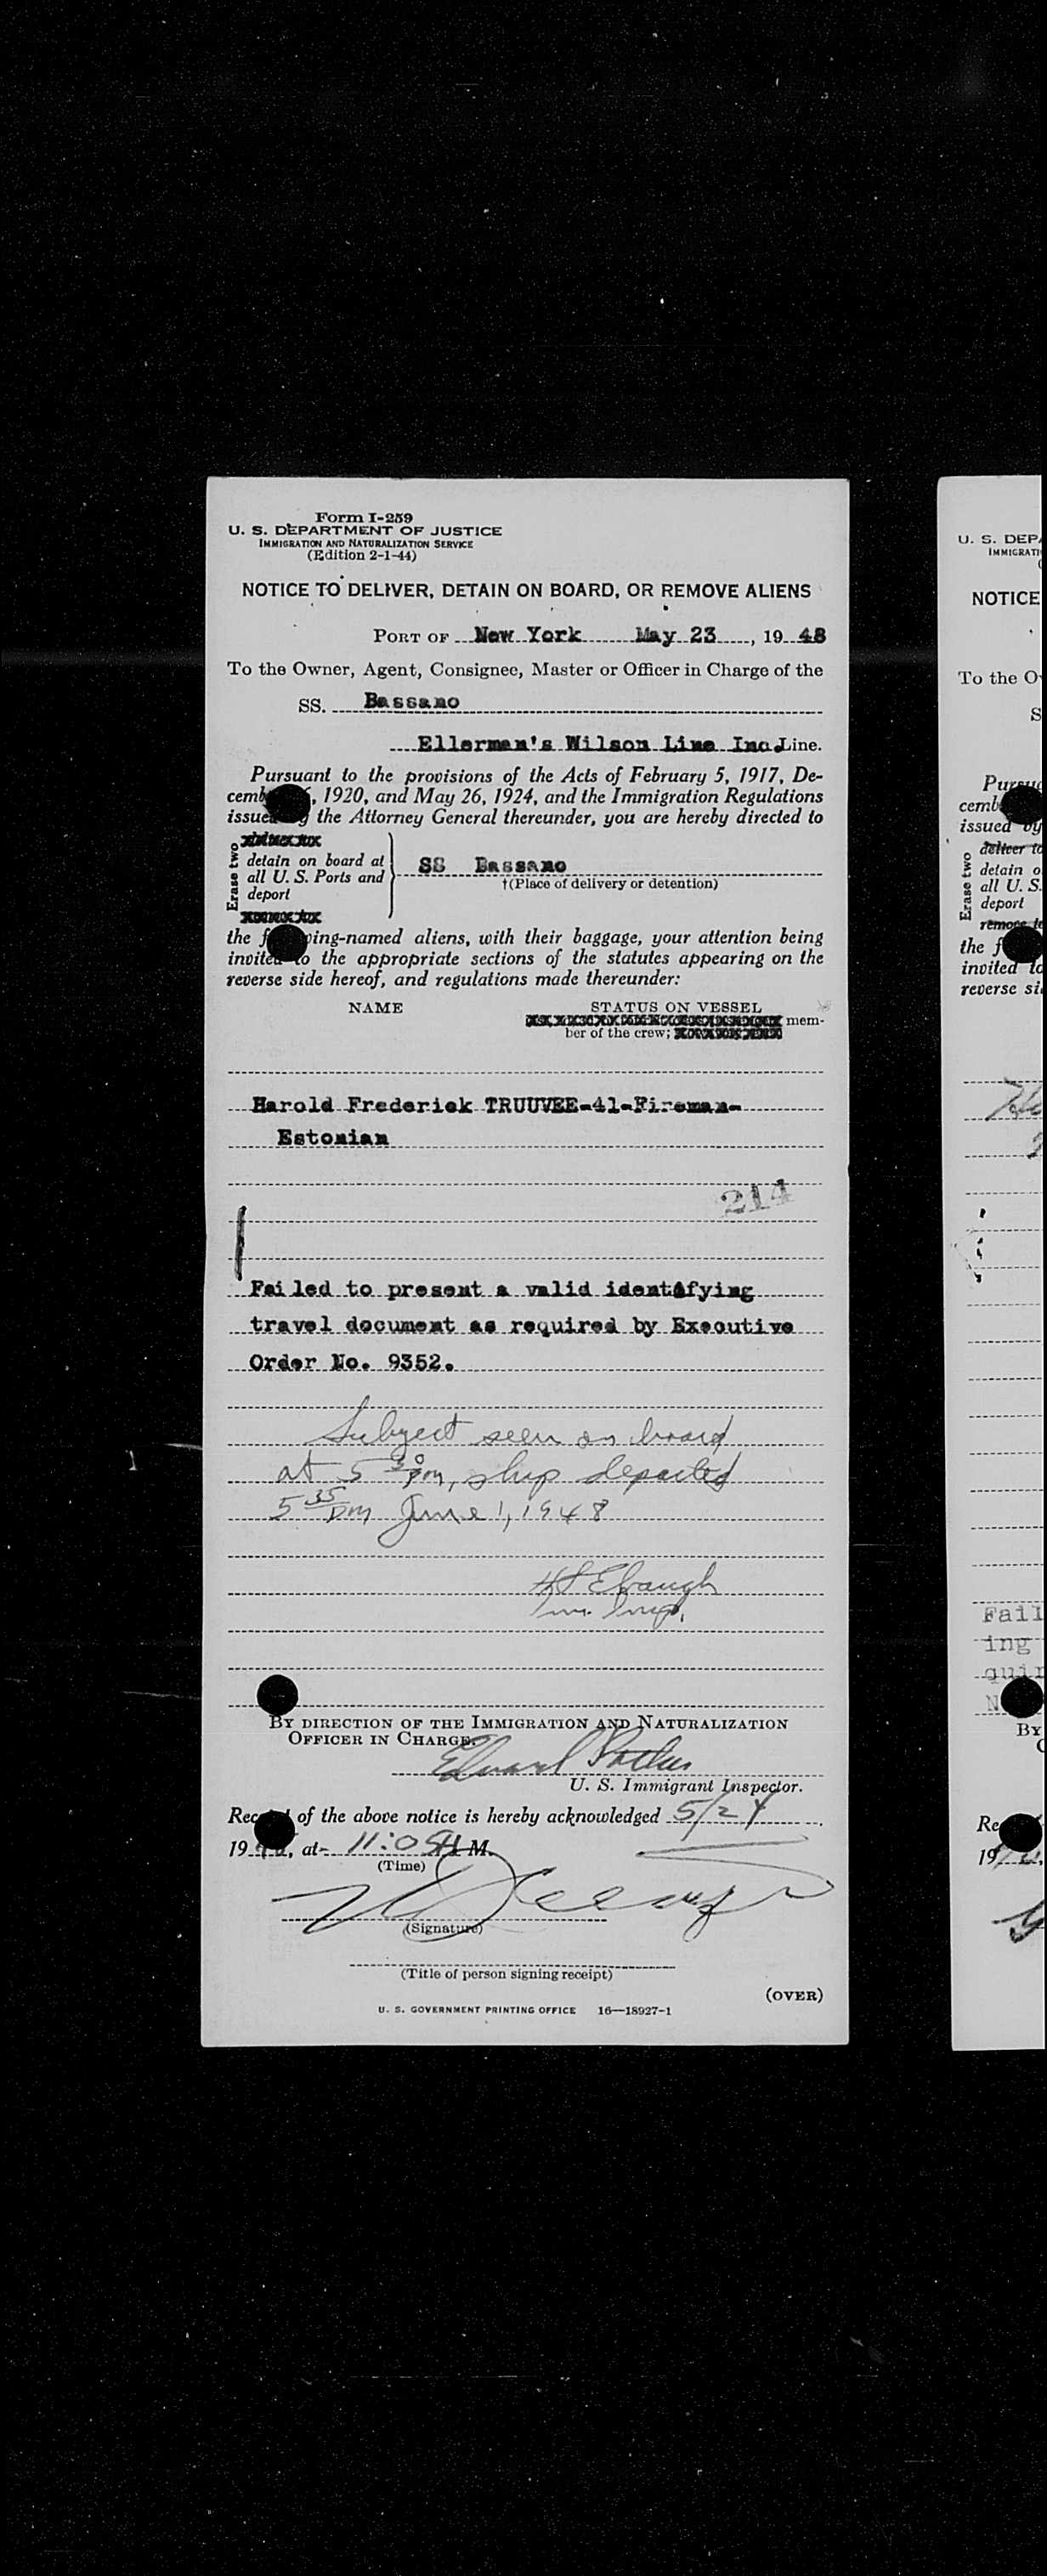 Form I-259
U. S. DEPARTMENT OF JUSTICE
IMMIGRATION AND NATURALIZATION SERVICE
(Edition 2-1-44)
NOTICE TO DELIVER, DETAIN ON BOARD, OR REMOVE ALIENS
PORT OF New York May 23, 19 48
To the Owner, Agent, Consignee, Master or Officer in Charge of the
SS. Bassano
Ellerman's Wilson Line Inc. Line.
Pursuant to the provisions of the Acts of February 5, 1917, De-
cemb 6, 1920, and May 26, 1924, and the Immigration Regulations
issued the Attorney General thereunder, you are hereby directed to
Erase two
detain on board at
all U. S. Ports and
deport
SS Bassano
†(Place of delivery or detention)
the f ing-named aliens, with their baggage, your attention being
invited to the appropriate sections of the statutes appearing on the
reverse side hereof, and regulations made thereunder:
NAME STATUS ON VESSEL
mem-
ber of the crew;
Harold Frederick TRUUVEE-41-Fireman-
Estonian
214
Failed to present a valid identifying
travel document as required by Executive
Order No. 9352.
Subject seen on board
at 5 30 pm, ship departed
5 35 pm June 1, 1948
Ebaugh
Imm. Insp.
BY DIRECTION OF THE IMMIGRATION AND NATURALIZATION
OFFICER IN CHARGE.
Edward
U. S. Immigrant Inspector.
Rec of the above notice is hereby acknowledged 5/24
19 , at 11:05 A M.
(Time)
(Signature)
(Title of person signing receipt)
(OVER)
U. S. GOVERNMENT PRINTING OFFICE 16—18927-1
U. S. DEP
IMMIGRATI
NOTICE
To the O
S
Pursu
cemb
issued by
Erase two
deliver to
detain o
all U. S.
deport
remove to
the f
invited to
reverse si
Fail
ing
quir
N
BY
Re
19